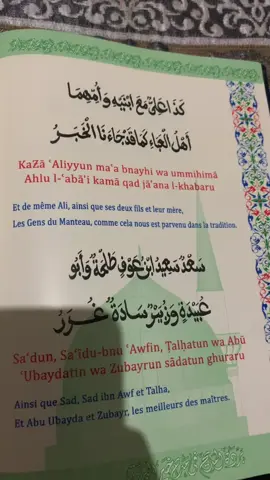 كَذَا عَلِيٌّ مَعَ ابْنَيْهِ وَأُمِّهِمَا
أَهْلُ الْعَبَاءِ كَمَا قَدْ جَاءَنَا الْخَبَرُ
KaZā ʿAliyyun maʿa bnayhi wa ummihimā
Ahlu l-ʿabāʾi kamā qad jāʾana l-khabaru
Et de même Ali, ainsi que ses deux fils et leur mère,
Les Gens du Manteau, comme cela nous est parvenu dans la tradition.
سَعْدٌ سَعِيدُ ابْنُ عَوْفٍ طَلْحَةٌ وَأَبُو
عُبَيْدَةٍ وَزُبَيْرٌ سَادَةٌ غُرَرُ
Saʿdun, Saʿīdu-bnu ʿAwfin, Ṭalḥatun wa Abū
ʿUbaydatin wa Zubayrun sādatun ghuraru
Ainsi que Sad, Sad ibn Awf et Talha,
Et Abu Ubayda et Zubayr, les meilleurs des maîtres.